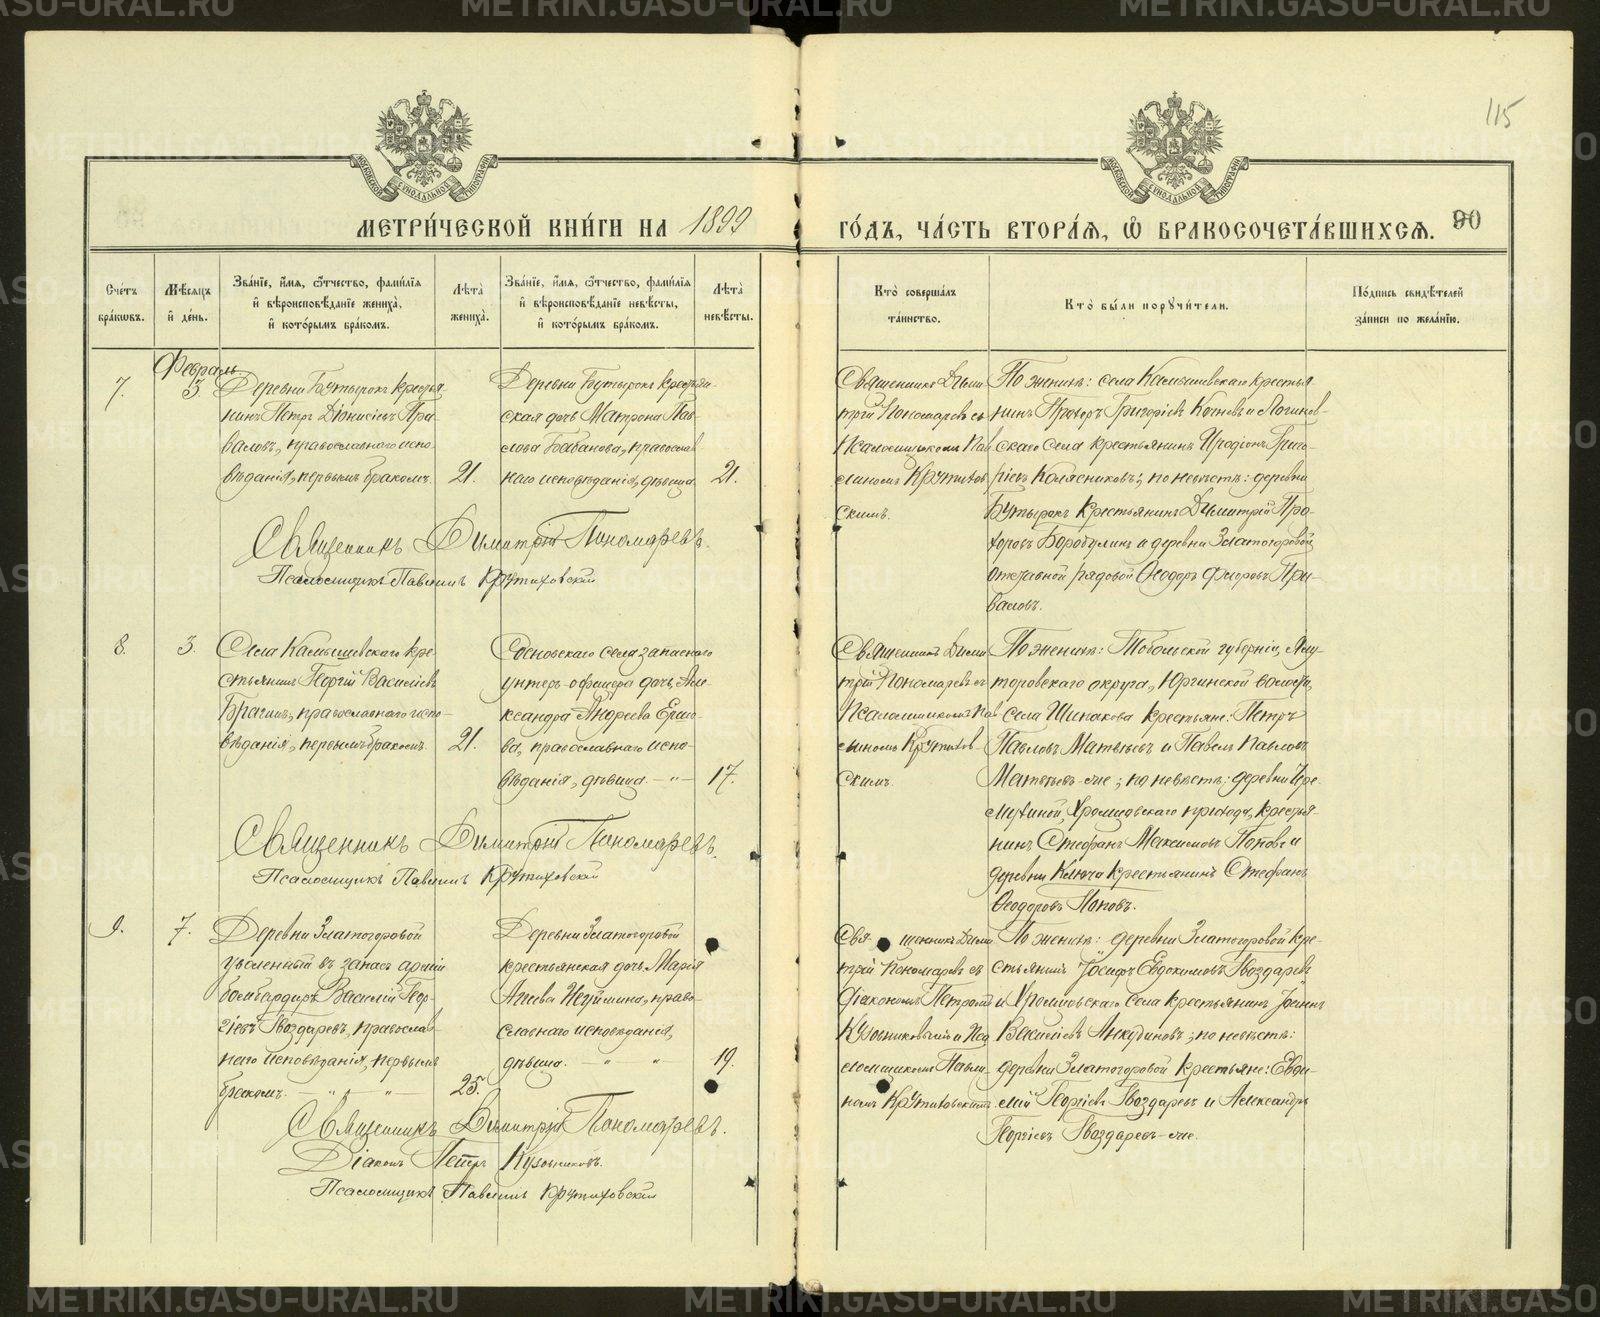 115
МОСКОВСКОЙ СѴНОДАЛЬНОЙ ТИПОГРАФІИ
МОСКОВСКОЙ СѴНОДАЛЬНОЙ ТИПОГРАФІИ
МЕТРИ́ЧЕСКОЙ КНИ́ГИ НА 1899
ГО́ДЪ, ЧА́СТЬ ВТОРА́Ѧ, Ѡ҆ БРАКОСОЧЕТА́ВШИХСѦ. 90
Сче́тъ бра́кѡвъ.
Мѣ́сѧцъ и҆ де́нь.
Зва́нїе, и҆́мѧ, ѻ҆́тчество, фами́лїѧ и҆ вѣроисповѣ́данїе жениха̀, и҆ кото́рымъ бра́комъ.
Лѣта̀ жениха̀.
Зва́нїе, и҆́мѧ, ѻ҆́тчество, фами́лїѧ и҆ вѣроисповѣ́данїе невѣ́сты, и҆ кото́рымъ бра́комъ.
Лѣта̀ невѣ́сты.
Кто̀ соверша́лъ та́инство.
Кто̀ бы́ли порꙋчи́тели.
По́дпись свидѣ́телей за́писи по жела́нїю.
Февраль.
7.
3.
Деревни Бутырокъ кресть-
нинъ Петръ Діонисіевъ При-
валовъ, православнаго испо-
вѣданія, первымъ бракомъ.
21.
Деревни Бутырокъ крестьян-
ская дочь Матрона Пав-
лова Бабанова, православ
наго исповѣданія, дѣвица
21.
Священникъ Дими
трій Пономаревъ съ
Псаломщикомъ Пав
линомъ Крутихов
скимъ.
По женихѣ: села Камышевскаго крестья
нинъ Прохоръ Григоріевъ Кочневъ и Логинов-
скаго села крестьянинъ Иродіонъ Григо-
ріевъ Колясниковъ; по невѣстѣ: деревни
Бутырокъ крестьянинъ Димитрій Про-
хоровъ Боробулинъ и деревни Златогоровой
отставной рядовой Ѳеодоръ Фроловъ При-
валовъ.
Священникъ Димитрій Пономаревъ.
Псаломщикъ Павлинъ Крутиховскій
8.
3.
Села Камышевскаго кре-
стьянинъ Георгій Василіевъ
Брагинъ, православнаго испо-
вѣданія, первымъ бракомъ.
21.
Сосновскаго села запаснаго
унтеръ-офицера дочь Але-
ксандра Андреева Ершо-
ва, православнаго испо-
вѣданія, дѣвица. — " —
17.
Священникъ Дими
трій Пономаревъ съ
Псаломщикомъ Пав
линомъ Крутихов-
скимъ.
По женихѣ: Тобольской губерніи, Ялу-
торовскаго округа, Юргинской волости,
села Шипакова крестьяне: Петръ
Павловъ Матвѣевъ и Павелъ Павловъ
Матвѣевъ-же; по невѣстѣ: деревни Чре-
мухиной, Хромцовскаго прихода, крестья-
нинъ Стефанъ Максимовъ Поповъ и
деревни Ключа крестьянинъ Стефанъ
Ѳеодоровъ Поповъ.
Священникъ Димитрій Пономаревъ.
Псаломщикъ Павлинъ Крутиховскій
9.
7.
Деревни Златогоровой
уволенный въ запасъ арміи
бомбардиръ Василій Геор-
гіевъ Гвоздаревъ, православ
наго исповѣданія, первымъ
бракомъ. — " — " —
25.
Деревни Златогоровой
крестьянская дочь Марія
Агеева Неуймина, право-
славнаго исповѣданія,
дѣвица. — " — "
19.
Священникъ Дими
трій Пономаревъ съ
діакономъ Петромъ
Кузовниковымъ и Пса
ломщикомъ Павли-
номъ Крутиховскимъ.
По женихѣ: деревни Златогоровой кре-
стьянинъ Іосифъ Евдокимовъ Гвоздаревъ
и Хромцовскаго села крестьянинъ Іоаннъ
Василіевъ Анкудиновъ; по невѣстѣ:
деревни Златогоровой крестьяне: Евфи-
мій Георгіевъ Гвоздаревъ и Александръ
Георгіевъ Гвоздаревъ-же.
Священникъ Димитрій Пономаревъ.
Діаконъ Петръ Кузовниковъ.
Псаломщикъ Павлинъ Крутиховскій
METRIKI.GASO-URAL.RU